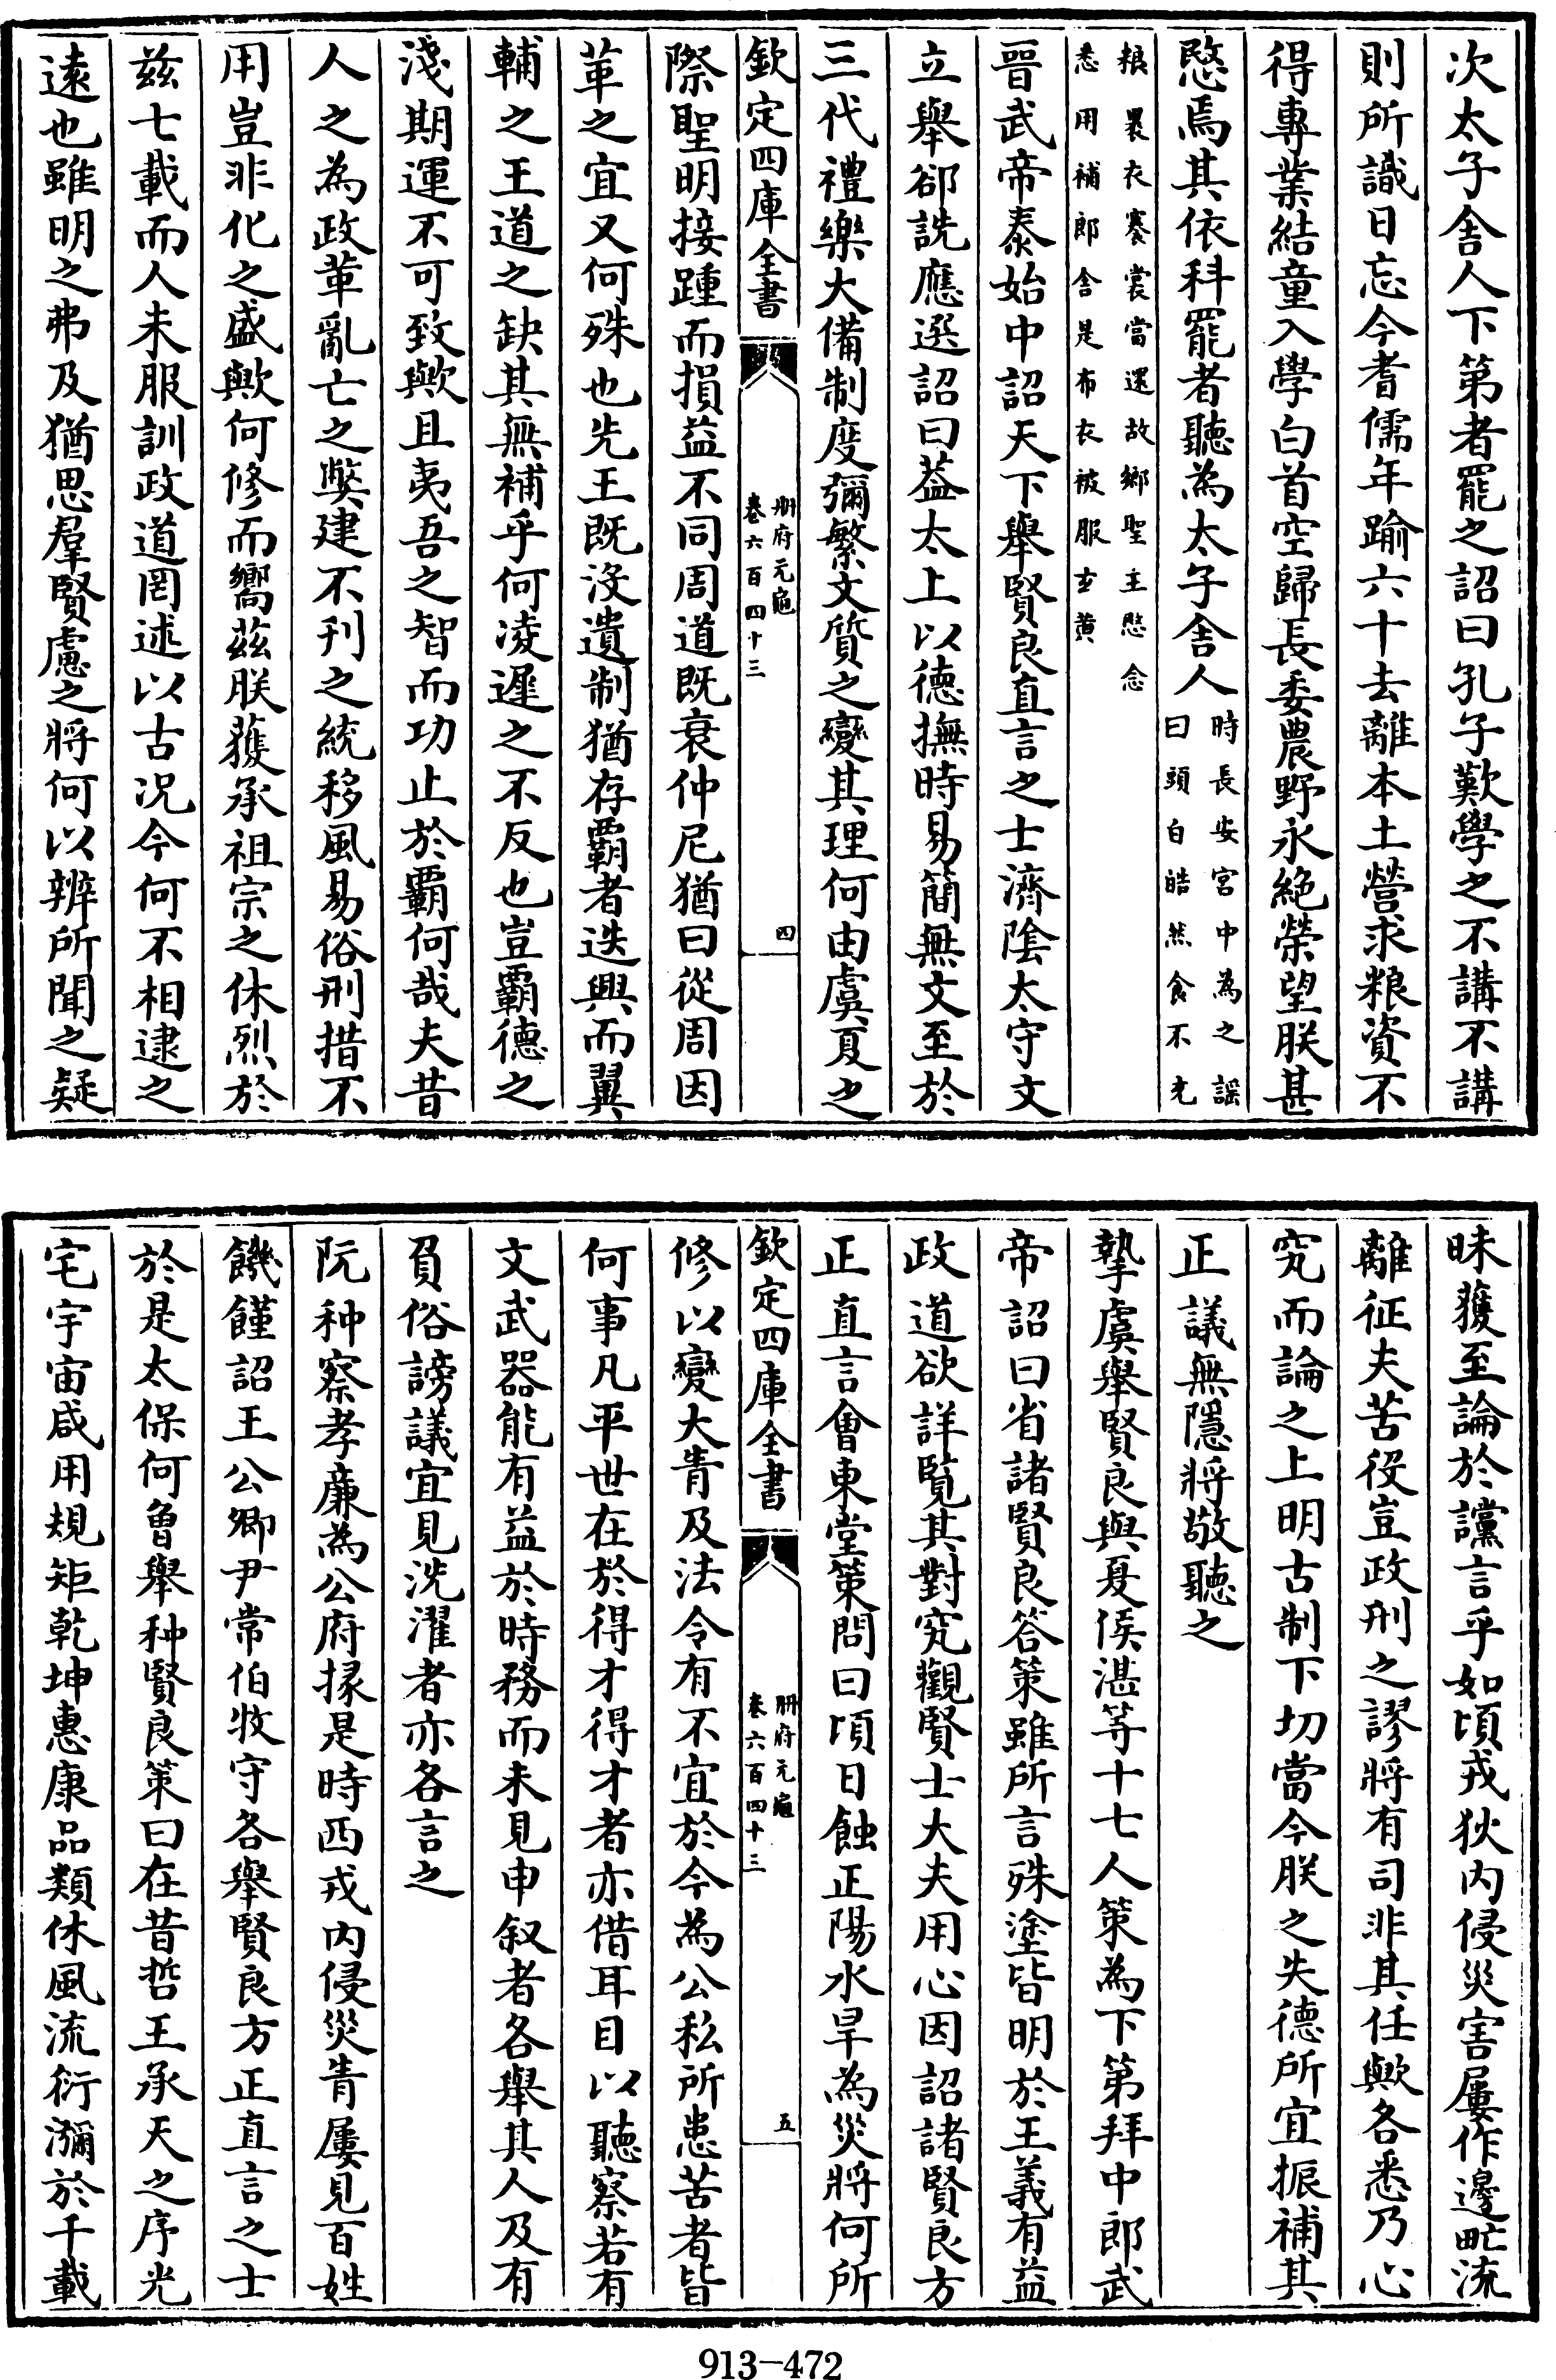 次太子舍人下第者罷之詔曰孔子歎學之不講不講
則所識日忘今耆儒年踰六十去離本土營求粮資不
得專業結童入學白首空歸長委農野永絶榮望朕甚
愍焉其依科罷者聽為太子舍人時長安宫中為之謡
曰頭白皓然食不充
粮褁衣褰裳當還故鄉聖主愍念
悉用補郎舍是布衣被服𤣥黄
晉武帝泰始中詔天下舉賢良直言之士濟隂太守文
立舉郤詵應選詔曰葢太上以徳撫時易簡無文至於
三代禮樂大備制度彌繁文質之變其理何由虞夏之
欽定四庫全書
册府元龜
卷六百四十三
四
際聖明接踵而損益不同周道既衰仲尼猶曰從周因
革之宜又何殊也先王既没遺制猶存覇者迭興而翼
輔之王道之缺其無補乎何凌遲之不反也豈覇德之
淺期運不可致歟且夷吾之智而功止於覇何哉夫昔
人之為政革亂亡之獘建不刋之統移風易俗刑措不
用豈非化之盛歟何修而嚮兹朕獲承祖宗之休烈於
兹七載而人未服訓政道罔述以古况今何不相逮之
逺也雖明之弗及猶思羣賢慮之將何以辨所聞之疑
昧獲至論於讜言乎如頃戎狄内侵災害屢作邊甿流
離征夫苦役豈政刑之謬將有司非其任歟各悉乃心
究而論之上明古制下切當今朕之失德所宜振補其
正議無隱將敬聽之
摯虞舉賢良與夏侯湛等十七人策為下第拜中郎武
帝詔曰省諸賢良答策雖所言殊塗皆明於王義有益
政道欲詳覧其對究觀賢士大夫用心因詔諸賢良方
正直言㑹東堂策問曰頃日蝕正陽水旱為災將何所
欽定四庫全書
册府元龜
卷六百四十三
五
修以變大眚及法令有不宜於今為公私所患苦者皆
何事凡平世在於得才得才者亦借耳目以聽察若有
文武器能有益於時務而未見申叙者各舉其人及有
負俗謗議宜見洗濯者亦各言之
阮种察孝亷為公府掾是時西戎内侵災眚屢見百姓
饑饉詔王公卿尹常伯牧守各舉賢良方正直言之士
於是太保何曾舉种賢良策曰在昔哲王承天之序光
宅宇宙咸用規矩乾坤惠康品類休風流衍瀰於千載
913-472